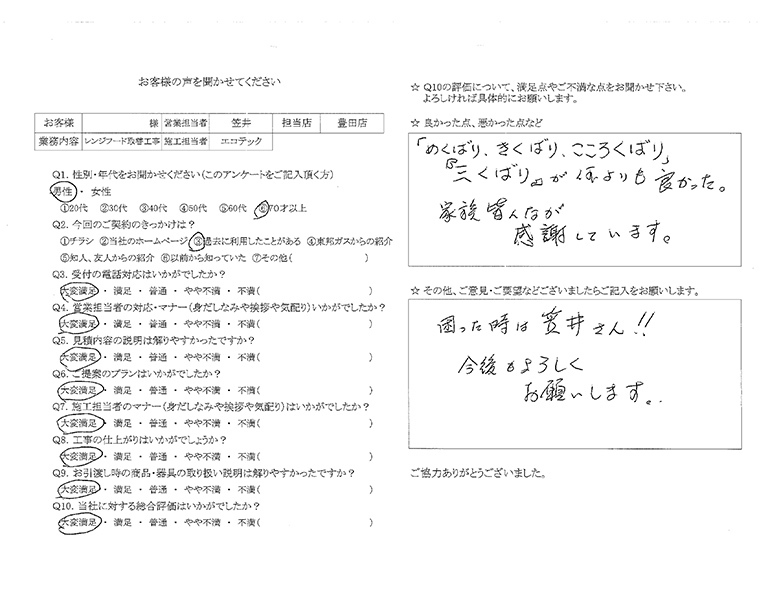 お客様の声を聞かせてください
お客様 様 営業担当者 笠井 担当店 豊田店
業務内容 レンジフード取替工事 施工担当者 エコテック
Q1. 性別・年代をお聞かせください(このアンケートをご記入頂く方)
男性 ・ 女性
①20代 ②30代 ③40代 ④50代 ⑤60代 ⑥70才以上
Q2. 今回のご契約のきっかけは?
①チラシ ②当社のホームページ ③過去に利用したことがある ④東邦ガスからの紹介
⑤知人、友人からの紹介 ⑥以前から知っていた ⑦その他( )
Q3. 受付の電話対応はいかがでしたか?
大変満足 ・ 満足 ・ 普通 ・ やや不満 ・ 不満( )
Q4. 営業担当者の対応・マナー(身だしなみや挨拶や気配り)いかがでしたか?
大変満足 ・ 満足 ・ 普通 ・ やや不満 ・ 不満( )
Q5. 見積内容の説明は解りやすかったですか?
大変満足 ・ 満足 ・ 普通 ・ やや不満 ・ 不満( )
Q6. ご提案のプランはいかがでしたか?
大変満足 ・ 満足 ・ 普通 ・ やや不満 ・ 不満( )
Q7. 施工担当者のマナー(身だしなみや挨拶や気配り)はいかがでしたか?
大変満足 ・ 満足 ・ 普通 ・ やや不満 ・ 不満( )
Q8. 工事の仕上がりはいかがでしょうか?
大変満足 ・ 満足 ・ 普通 ・ やや不満 ・ 不満( )
Q9. お引渡し時の商品・器具の取り扱い説明は解りやすかったですか?
大変満足 ・ 満足 ・ 普通 ・ やや不満 ・ 不満( )
Q10. 当社に対する総合評価はいかがでしたか?
大変満足 ・ 満足 ・ 普通 ・ やや不満 ・ 不満( )
☆ Q10の評価について、満足点やご不満な点をお聞かせ下さい。
よろしければ具体的にお願いします。
☆ 良かった点、悪かった点など
「めくばり、きくばり、こころくばり」
『三くばり』が何よりも良かった。
家族皆んなが
感謝しています。
☆ その他、ご意見・ご要望などございましたらご記入をお願いします。
困った時は笠井さん!!
今後もよろしく
お願いします。
ご協力ありがとうございました。